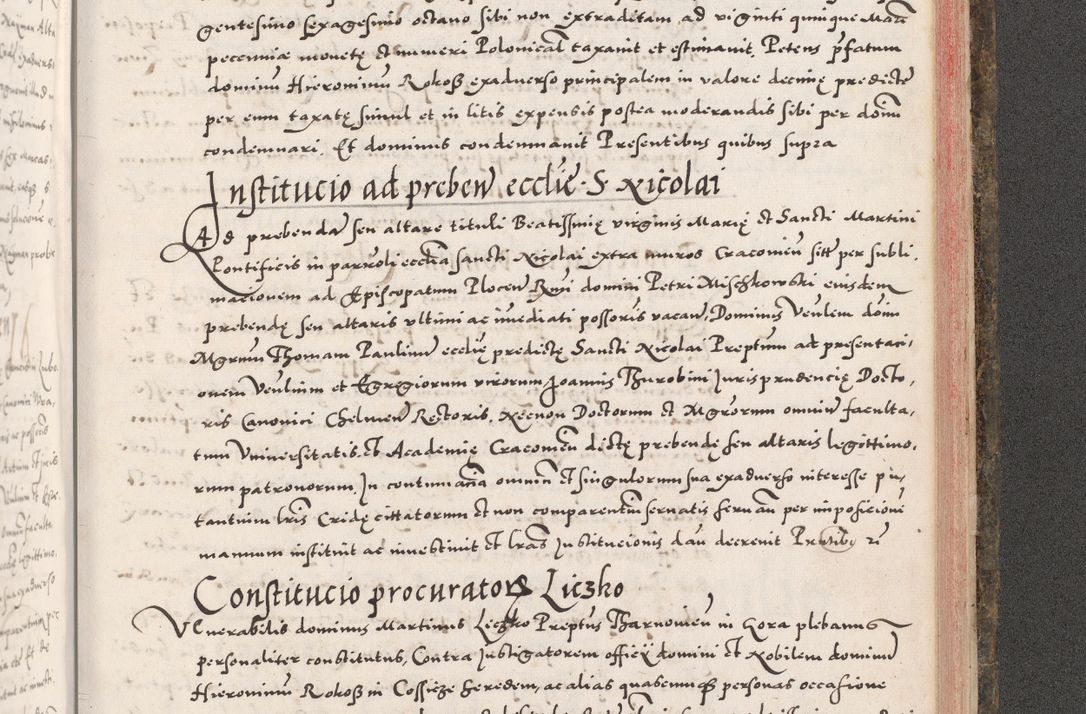 gentesimo sexagesimo octavo sibi non extraditam ad viginti quinque Marcas
pecuniæ monetę et numeri Polonicalis taxavit et estimavit. Petens prefatum
dominum Hieronimum Rokoß exadverso principalem in valore decimę predicte
per eum taxatę simul et in litis expensis postea moderandis sibi per dominum
condemnari. Et dominus condemnavit Presentibus quibus supra
Institucio ad preben ecclie S Nicolai
Ad prebendam seu altare tituli Beatissimę virginis Marię et Sancti Martini
Pontificis in parrochiali ecclia sancti Nicolai extra muros Cracovien sitt per subli,
macionem ad Episcopatum Plocen Rmi domini Petri Mischkowski eiusdem
prebendę seu altaris ultimi ac immediati possoris vacan, Dominus Venlem domi
Mgrum Thomam Paulinum ecclię predictę Sancti Nicolai Preptum ad presentaci,
onem Venlium et Egregiorum virorum Joannis Thurobini Jurisprudencię Docto,
ris Canonici Chelmen Rectoris, Necnon Doctorum et Mgrorum omnium faculta,
tum Universitatis et Academię Cracovien dictę prebendę seu altaris legittimo,
rum patronorum. In contumaciam omnium et singulorum sua exadverso interesse pu,
tantium lris Cridę cittatorum et non comparentium servatis servan per imposicione
manuum instituit ac investivit et lras Institucionis dari decrevit Pntibus ut
Constitucio procuratoris Liczko
Venerabilis dominus Martinus Liczko Preptus Tharnovien in Gora plebanus
personaliter constitutus, Contra Instigatorem officii domini et Nobilem dominum
Hieronimum Rokoß in Cossicze heredem, ac alias quascumque personas occasione